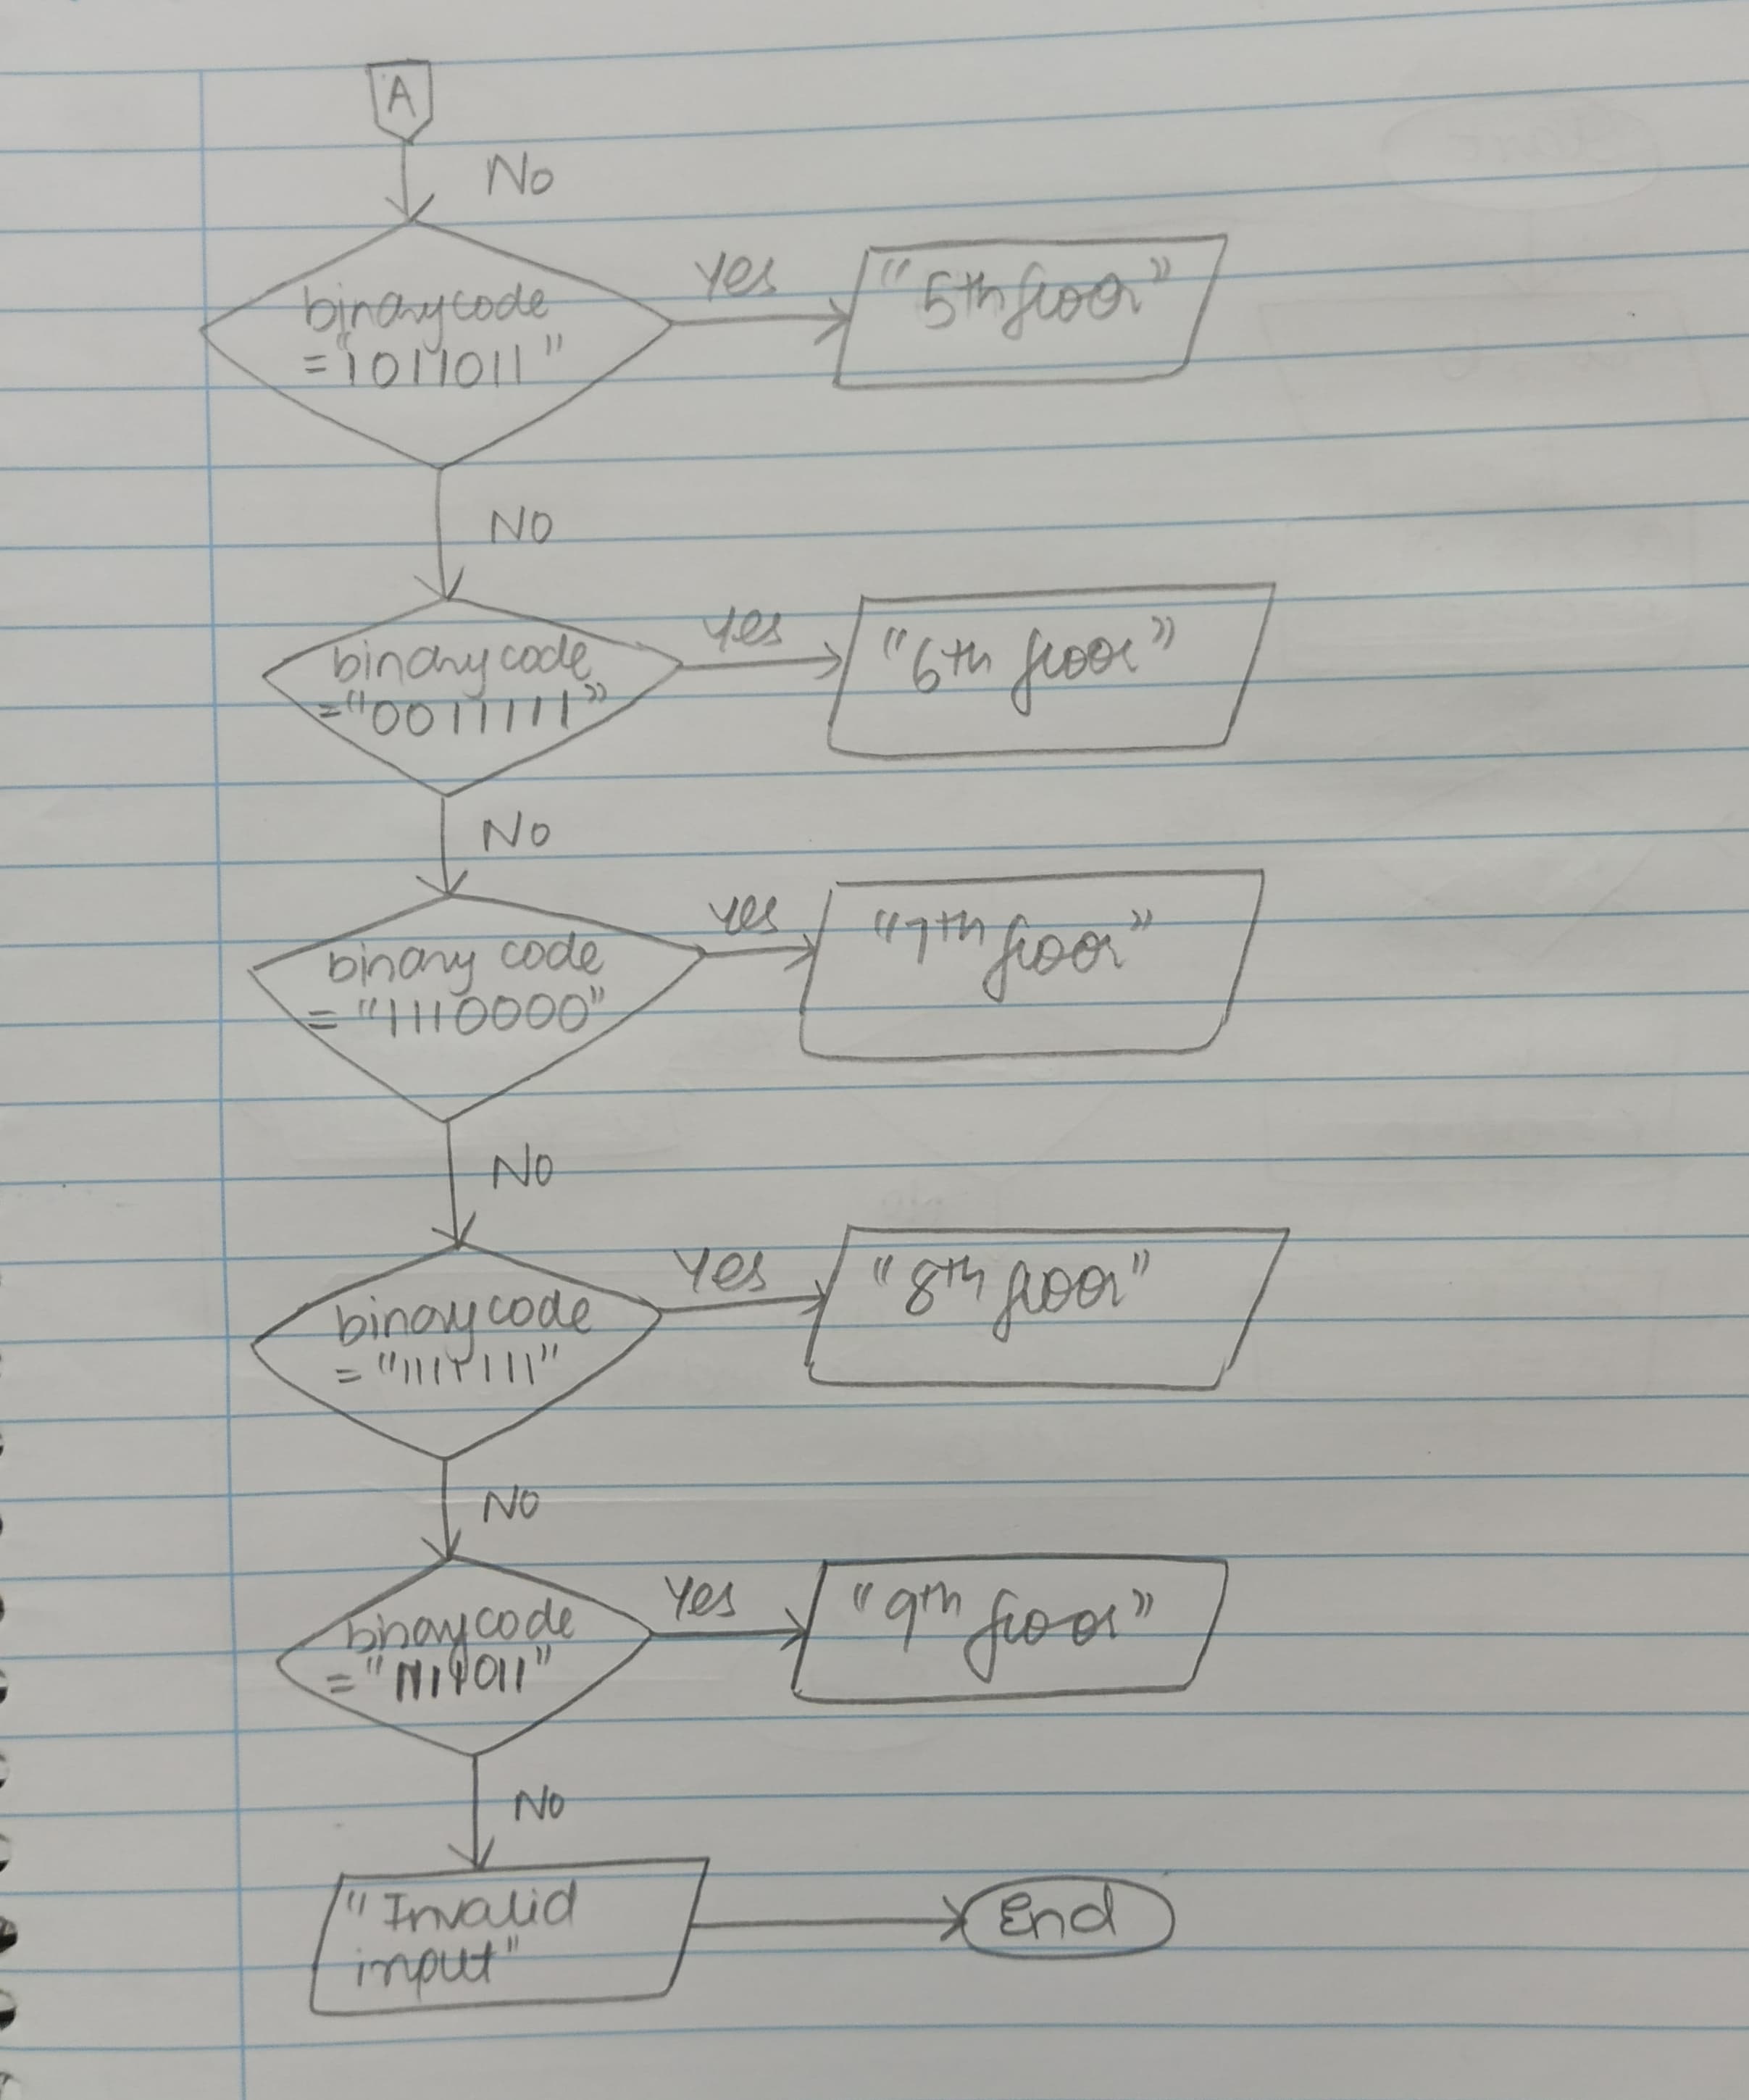 A
No
binarycode
="1011011"
Yes
"5th floor"
NO
binarycode
="0011111"
Yes
"6th floor"
No
binary code
="1110000"
Yes
"7th floor"
NO
binarycode
="1111111"
Yes
"8th floor"
NO
binarycode
Yes
"9th floor"
No
"Invalid
input"
End